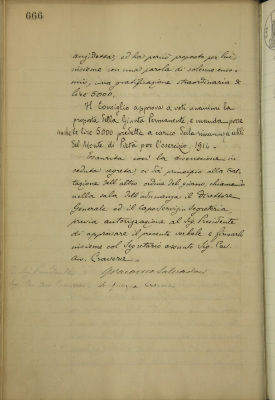 666
ed ha però proposto per lui,
insieme con una parola di solenne
una gratificazione straordinaria di
lire 5000.
Il Consiglio approva a voti unanimi la
proposta della Giunta Permanente e manda
le Lire 5000 predette a carico della
del Monte di Pietà per l'esercizio 1914.
Esaurita così la discussione in
seduta segreta, si dà principio alla trat-
tazione dell'altro ordine del giorno, chiamando
nella sala dell'adunanza il Direttore
Generale ed il Capo Servizio Segreteria
previa autorizzazione al Sig. Presidente
di approvare il presente verbale e firmarlo
insieme col Segretario assunto Sig. Cav.
Avv. Cravera.